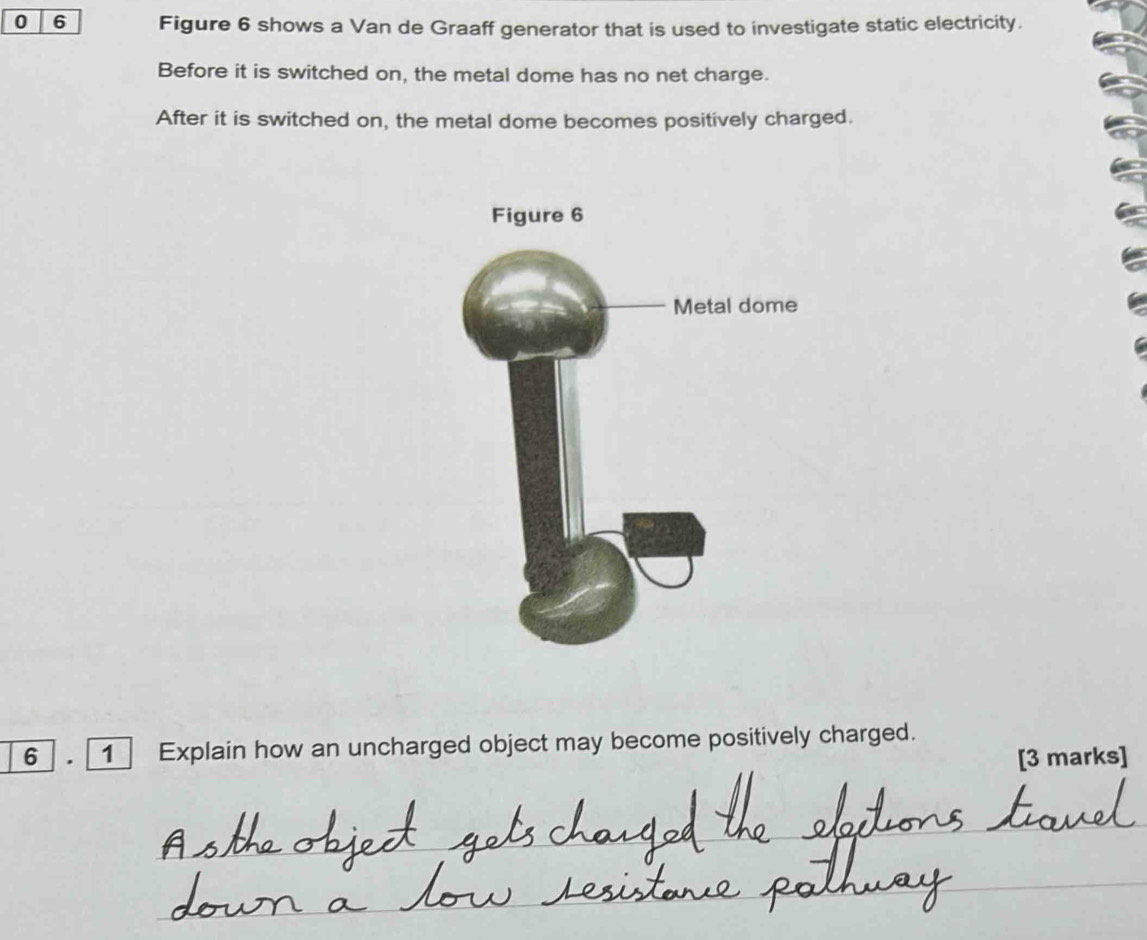 0 6 Figure 6 shows a Van de Graaff generator that is used to investigate static electricity.
Before it is switched on, the metal dome has no net charge.
After it is switched on, the metal dome becomes positively charged.
Figure 6
Metal dome
6 . 1 Explain how an uncharged object may become positively charged.
[3 marks]
As the object gets charged the electrons travel
down a low resistance pathway